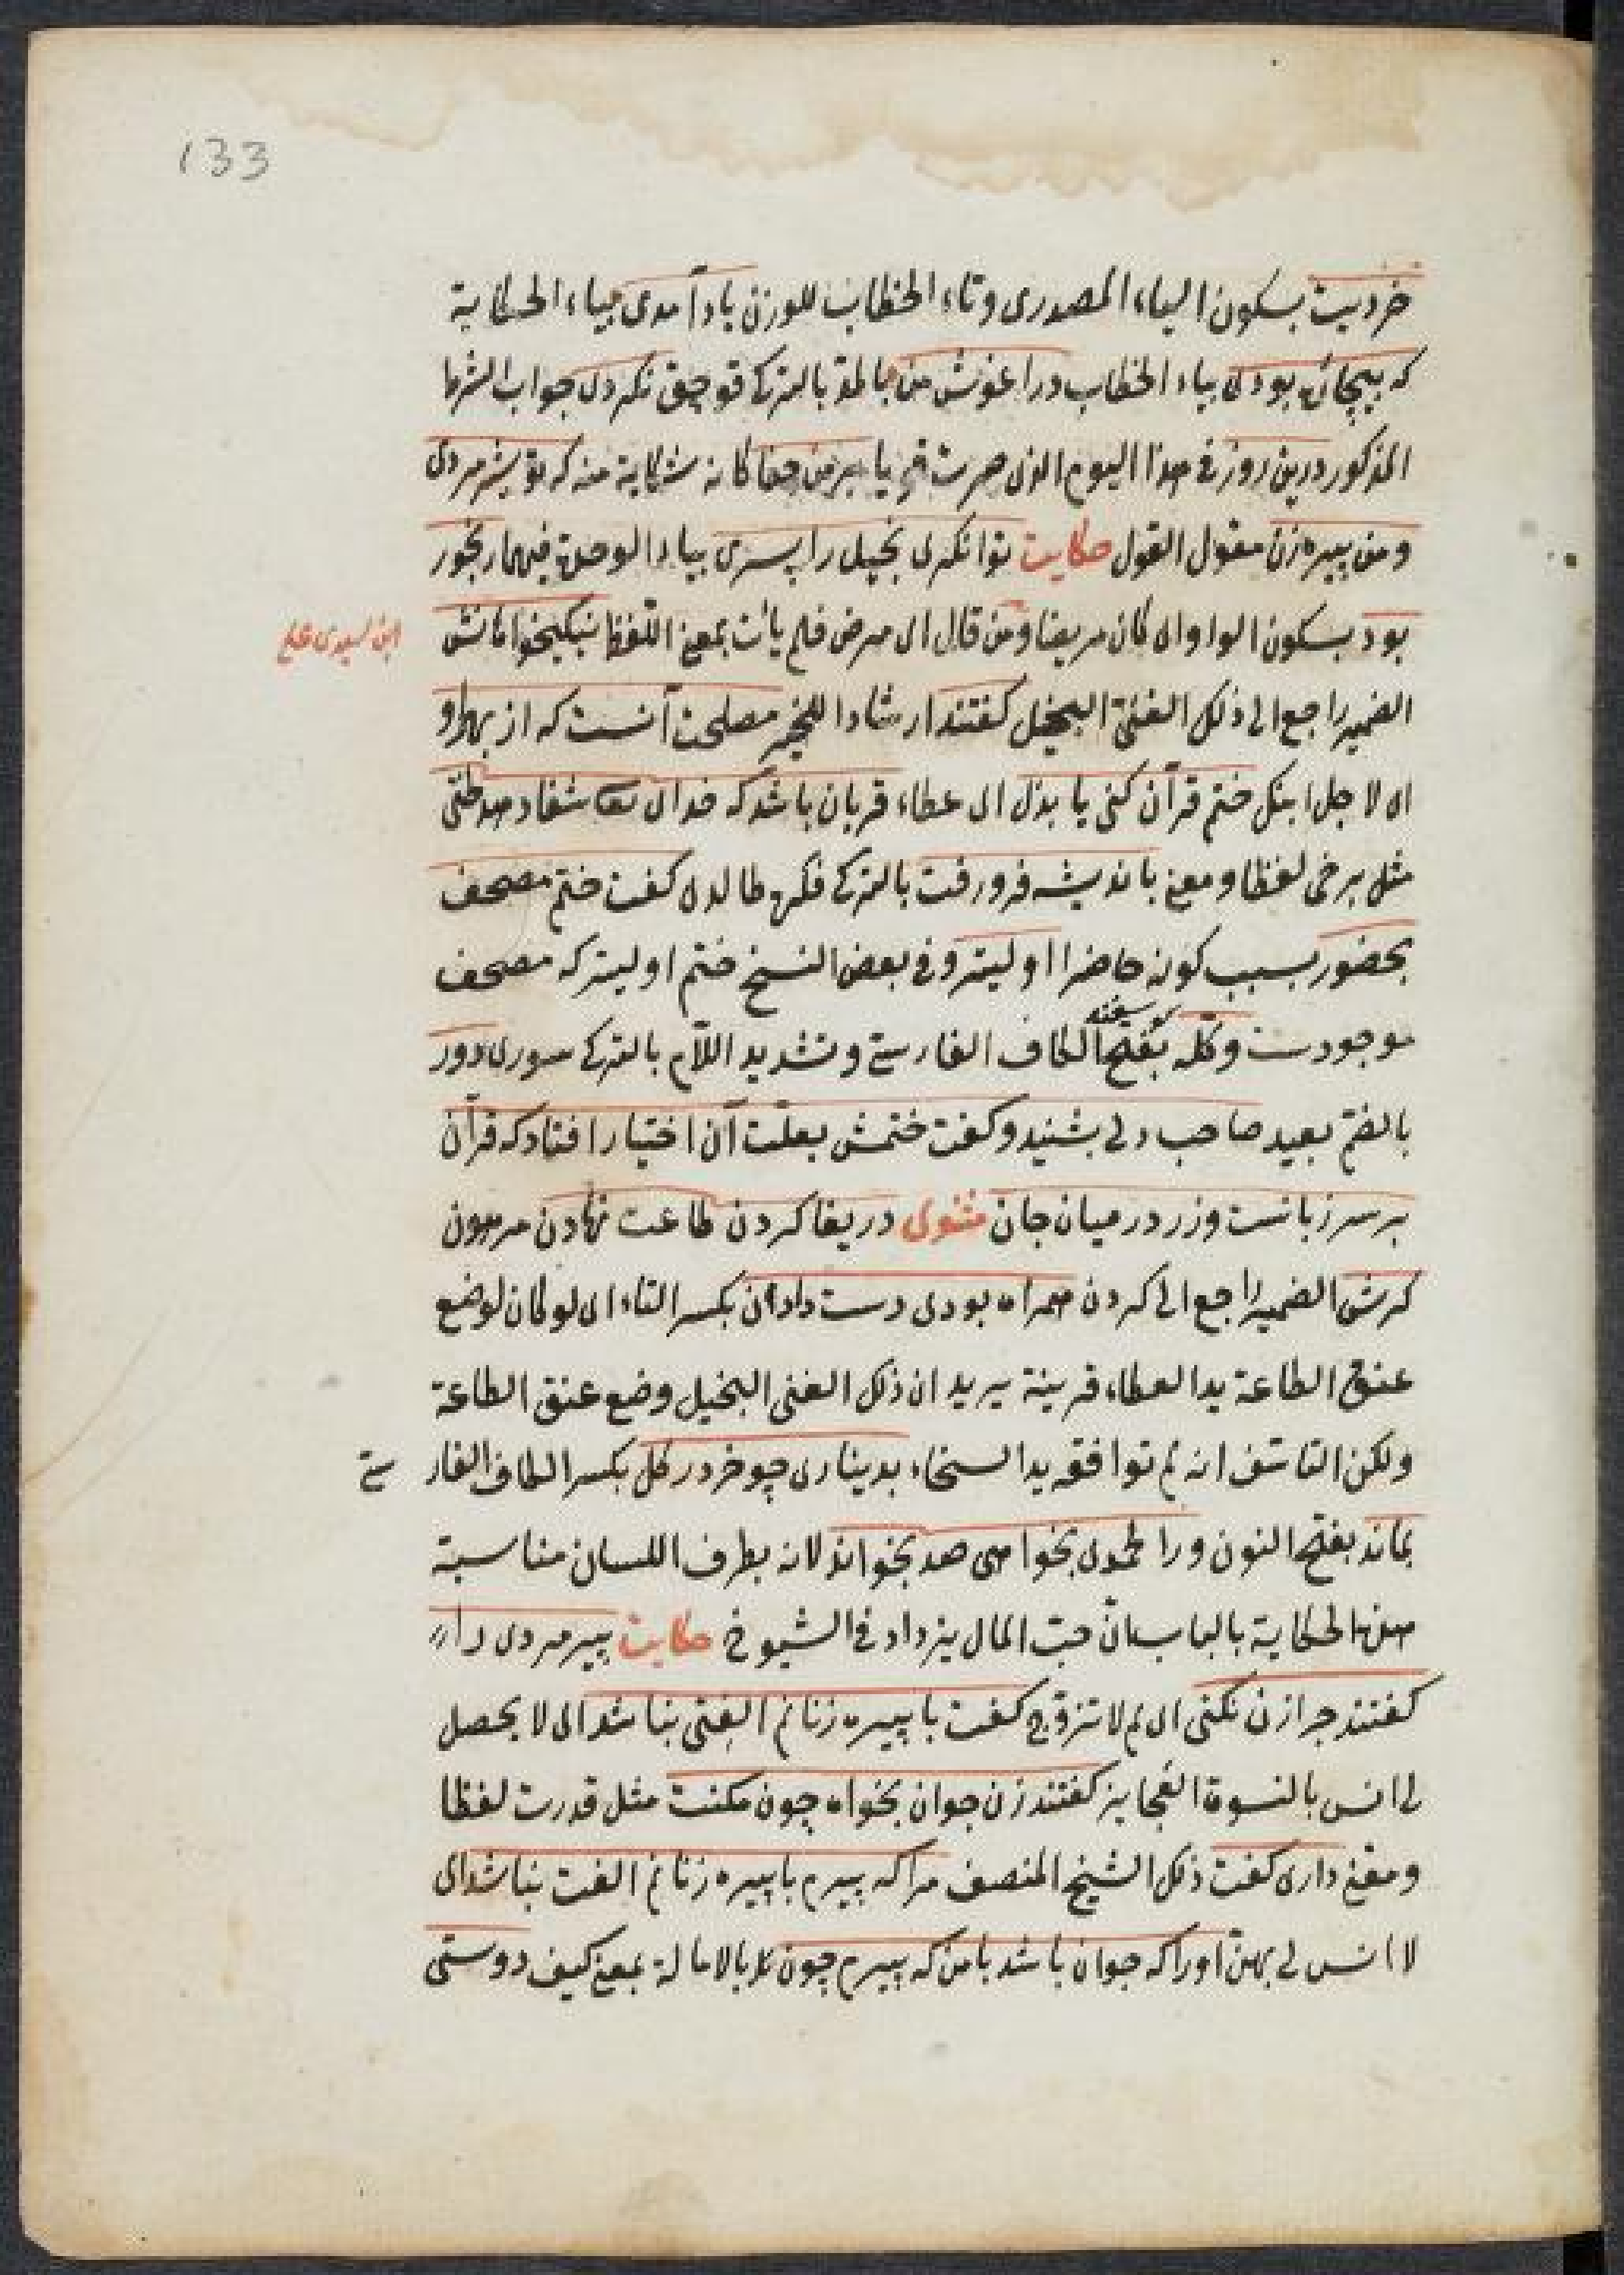 133
خردیت بسکون الیاء المصدری وتاء الخطاب للوزن یاد آمدی بیاء الحکایة
که بیچاره بودی بیاء الخطاب در اغوش من بالمد بالترکی قوجق نکردی جواب الشرط
المذکور درین روز فی هذا الیوم الذی صرت فیه یا بر من جفا کانه شکایة منه که تو شیر مردی
ومن پیره زن مقول القول حکایت توانکری بخیل را پسری بیاء الوحدة فیهما رنجور
بود بسکون الواو ای کان مریضا ومن قال ای مرض فلم یأت بمعنی اللفظ نیکیخواهانش
الضمیر راجع الی ذلک الغنی البخیل کفتند ارشادا للخیر مصلحت آنست که از بهر او
ای لاجل ابنک ختم قرآن کنی یا بذل ای عطاء قربان باشد که خدای شفا دهد لختی
مثل برخی لفظا ومعنی باندیشه فرو رفت بالترکی فکره طالدی کفت ختم مصحف
بحضور بسبب کونه حاضرا اولیتر وفی بعض النسخ ختم اولیتر که مصحف
موجودست وکله بفتح الکاف الفارسی وتشدید اللام بالترکی سوری دور
بالضم بعید صاحب دلی بشنید وکفت ختمش بعلت آن اختیار افتاد که قرآن
بر سر زبانست وزر در میان جان مثنوی دریغا کردن طاعت نهادن مرهون
کرش الضمیر راجع الی کردن همراه بودی دست دادن بکسر التاء ای لو کان لوضع
عنق الطاعة ید العطاء قرینة یرید ان ذلک الغنی البخیل وضع عنق الطاعة
ولکن التاسف انه لم توافقه ید السخاء بدیناری چو خر در کل بکسر الکاف الفارسی
بماند بفتح النون ورا لحمدی بخواهی صد بخواند لانه بطرف اللسان مناسبة
هذه الحکایة بالباب ان حب المال یزداد فی الشیوخ حکایت پیر مردی را
کفتند چرا زن نکنی ای لم لا تتزوج کفت با پیره زنانم الفتی نباشد ای لا یحصل
لی انس بالنسوة العجایز کفتند زن جوان بخواه چون مکنت مثل قدرت لفظا
ومعنی داری کفت ذلک الشیخ المنصف مرا که پیرم با پیره زنانم الفت نباشد ای
لا انس لی بهن اورا که جوان باشد با من که پیرم چون بالامالة بمعنی کیف دوستی